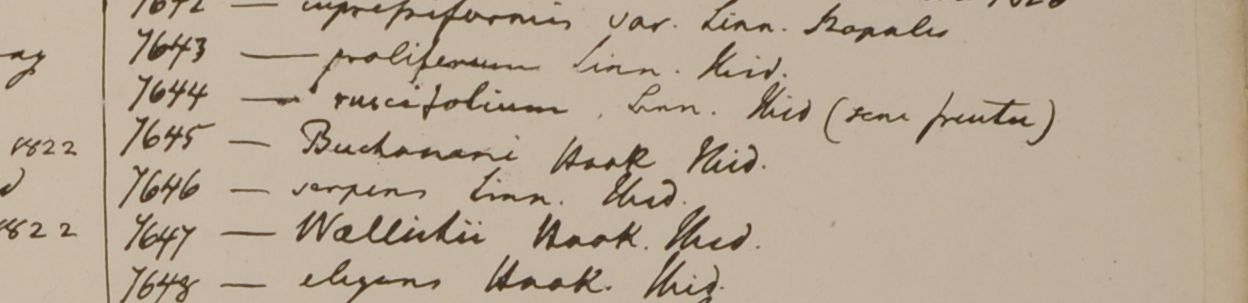 7642 — cupressiformis var. Linn. Napalis
ng 7643 — proliferum Linn. Ibid.
7644 — ruscifolium. Linn. Ibid (sene fructu)
1822 7645 — Buchanani Hook Ibid.
d 7646 — serpens Linn. Ibid.
1822 7647 — Wallichii Hook. Ibid.
7648 — elegans Hook. Ibid.